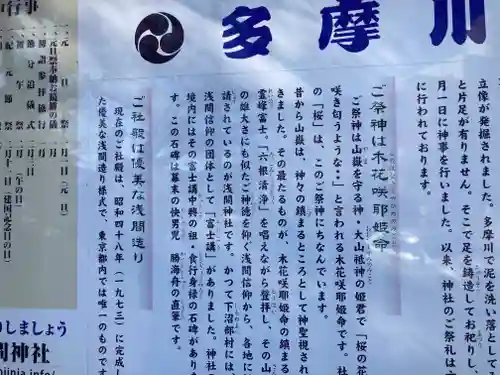 多摩川
立像が発掘されました。多摩川で泥を洗い落として
と片足が有りません。そこで足を鋳造してお祀りし、
月一日に神事を行いました。以来、神社のご祭礼は
に行われております。
ご祭神は木花咲耶姫命
ご祭神は山嶽を守る神・大山祗神の姫君で「桜の花
咲き匂うような・・」と言われる木花咲耶姫命です。社
の「桜」は、このご祭神にちなんでいます。
昔から山嶽は、神々の鎮まるところとして神聖視され
きました。その最たるものが、木花咲耶姫命の鎮まる
霊峰富士。「六根清浄」を唱えながら登拝し、その山
の雄大さにも似たご神徳を仰ぐ浅間信仰から、各地に
請されているのが浅間神社です。かつて下沼部村には、
浅間信仰の団体として「富士講」がありました。神社
境内にはその富士講中興の祖・食行身禄の石碑があり
す。この石碑は幕末の快男児 勝海舟の直筆です。
ご社殿は優美な浅間造り
現在のご社殿は、昭和四十八年（一九七三）に完成し
た優美な浅間造り様式で、東京都内では唯一のものです
中行事
元旦祭 一月一日 元旦
節分追儺式 二月
初午祭 二月 (二の午の日)
紀元節祭 二月十一日 (建国記念日の日)
しましょう
間神社